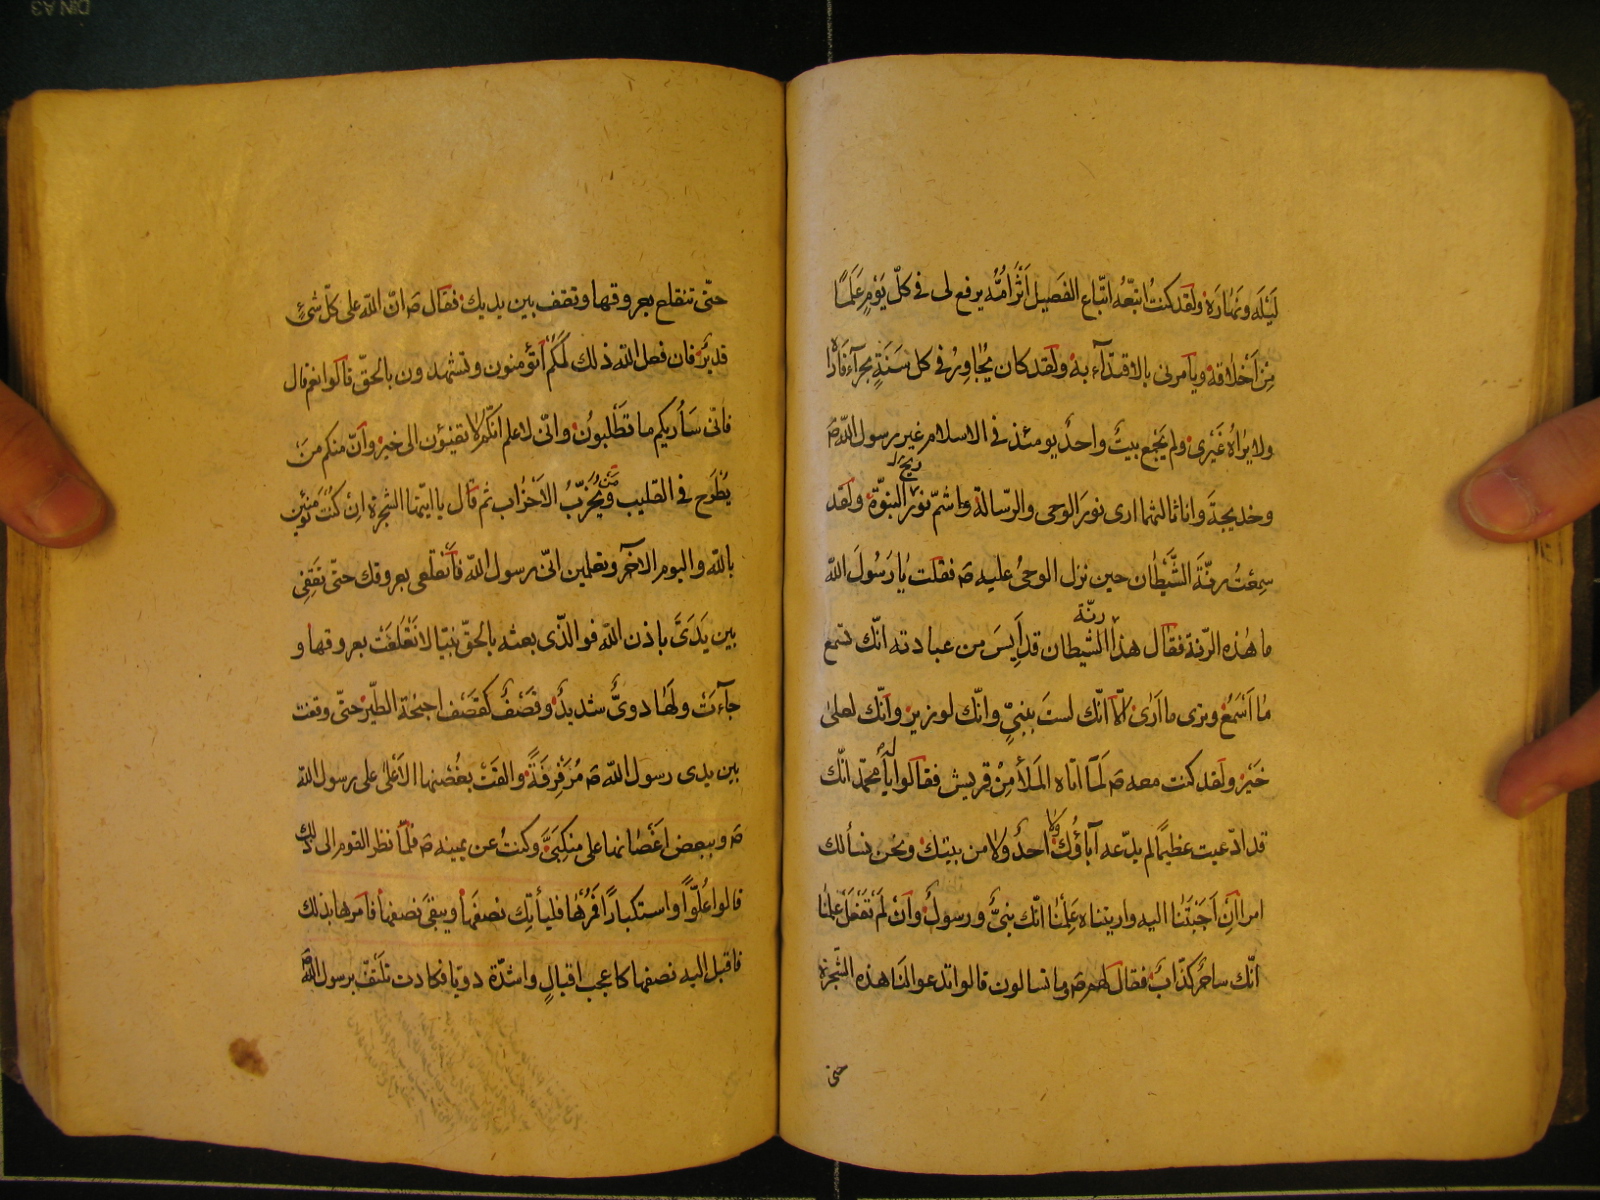 لَيْلَه وَنَهٰارَهُ وَلَقَد كنتُ اتبّعُه اتّباع الفَصيل أثَرَ اُمّه يرفع لى فى كلّ يَوْمٍ عَلَماً
مِنْ اَخْلاقه ويأمرنى بالاقتدآء به وَلَقد كان يُجٰاوِرُ فى كل سَنَةٍ بحرآء فَأراهُ
ولا يراهُ غَيْرى ولم يَجْمع بيتٌ واحدٌ يومئذ فى الاسلام غير رسول اللّه ص
وخديجةَ وانا ثالثهما ارى نورَ الوحى والرّسالة واشمّ ريحَ النبوّة ولَقد
سمِعْتُ رنّةَ الشَّيْطٰان حين نزل الوحىُ عليه ص فقلت يٰا رَسُولَ اللّه
ما هٰذه الرّنة فقال هذا الشيطان قد أَيِسَ من عبادته انّك تسمع
مٰا اَسْمَعُ وترى ما اَرٰى الاّ انّك لستَ بنبىٍّ وانّك لوزير وانّك لعلىٰ
خَيْرٍ ولَقد كنت معه ص لَمّا اتاه المَلأُ مِنْ قريش فقالوا له يا محمّد انّك
قد ادّعيت عَظيماً لم يدّعه آباؤُكَ ولا احدٌ من بيتك ونحن نسألك
امرا اِنْ اَجَبْتَنٰا اليه واريتناه عَلِمْنٰا انّك نبىٌّ ورسولٌ وَاِنْ لَمْ تَفْعَلْ عَلِمْنٰا
انّك ساحرٌ كذّابٌ فقال لهم ص وما تسالون قالوا تدعو لنا هذه الشّجرة
حتى
حتّى تنقلع بعروقها وتقف بين يديك فقال ص انّ اللّه على كلّ شئٍ
قديرٌ فان فعل اللّه ذلك لَكُمْ أتؤمنون وتشهدون بالحقّ قالوا نعم قال
فانّى سَأُريكم ما تَطْلبونُ وانّى لاعلم انّكم لا تفيؤن الى خيرٍ وانّ منكم مَنْ
يُطْرَح فى القليب ومَنْ يُحَزِّبُ الاَحْزٰاب ثم قال يا ايّتها الشّجرة ان كنتِ تؤمنين
باللّه واليوم الاخر وتعلمين انّى رسول اللّه فَأَنْقلعى بعروقك حتّى تَقِفِى
بين يَدَىَّ باذن اللّه فو الذّى بعثه بالحقّ نبيّا لانْقَلَعَتْ بعروقها و
جآءتْ ولَهٰا دوىٌّ شديدٌ وقَصْفٌ كقَصْف اجنحة الطّير حتّى وقفت
بين يدى رسول اللّه ص مُرَفْرِفَةً والقتْ بغُصْنها الاَعْلىٰ على رسول اللّه
ص وببعض اَغْصٰانها على منكِبَىَّ وكنتُ عن يمينه ص فلمّا نظر القوم الى ذلك
قالوا عُلُوّاً واستكبارًا فَمُرْهٰا فليأتِك نصفهٰا ويبقىٰ نصفهٰا فأمرها بذلك
فاقبل اليه نصفها كاعجب اقبالٍ واشدّة دويّا فكادت تلتفّ برسول اللّه ص